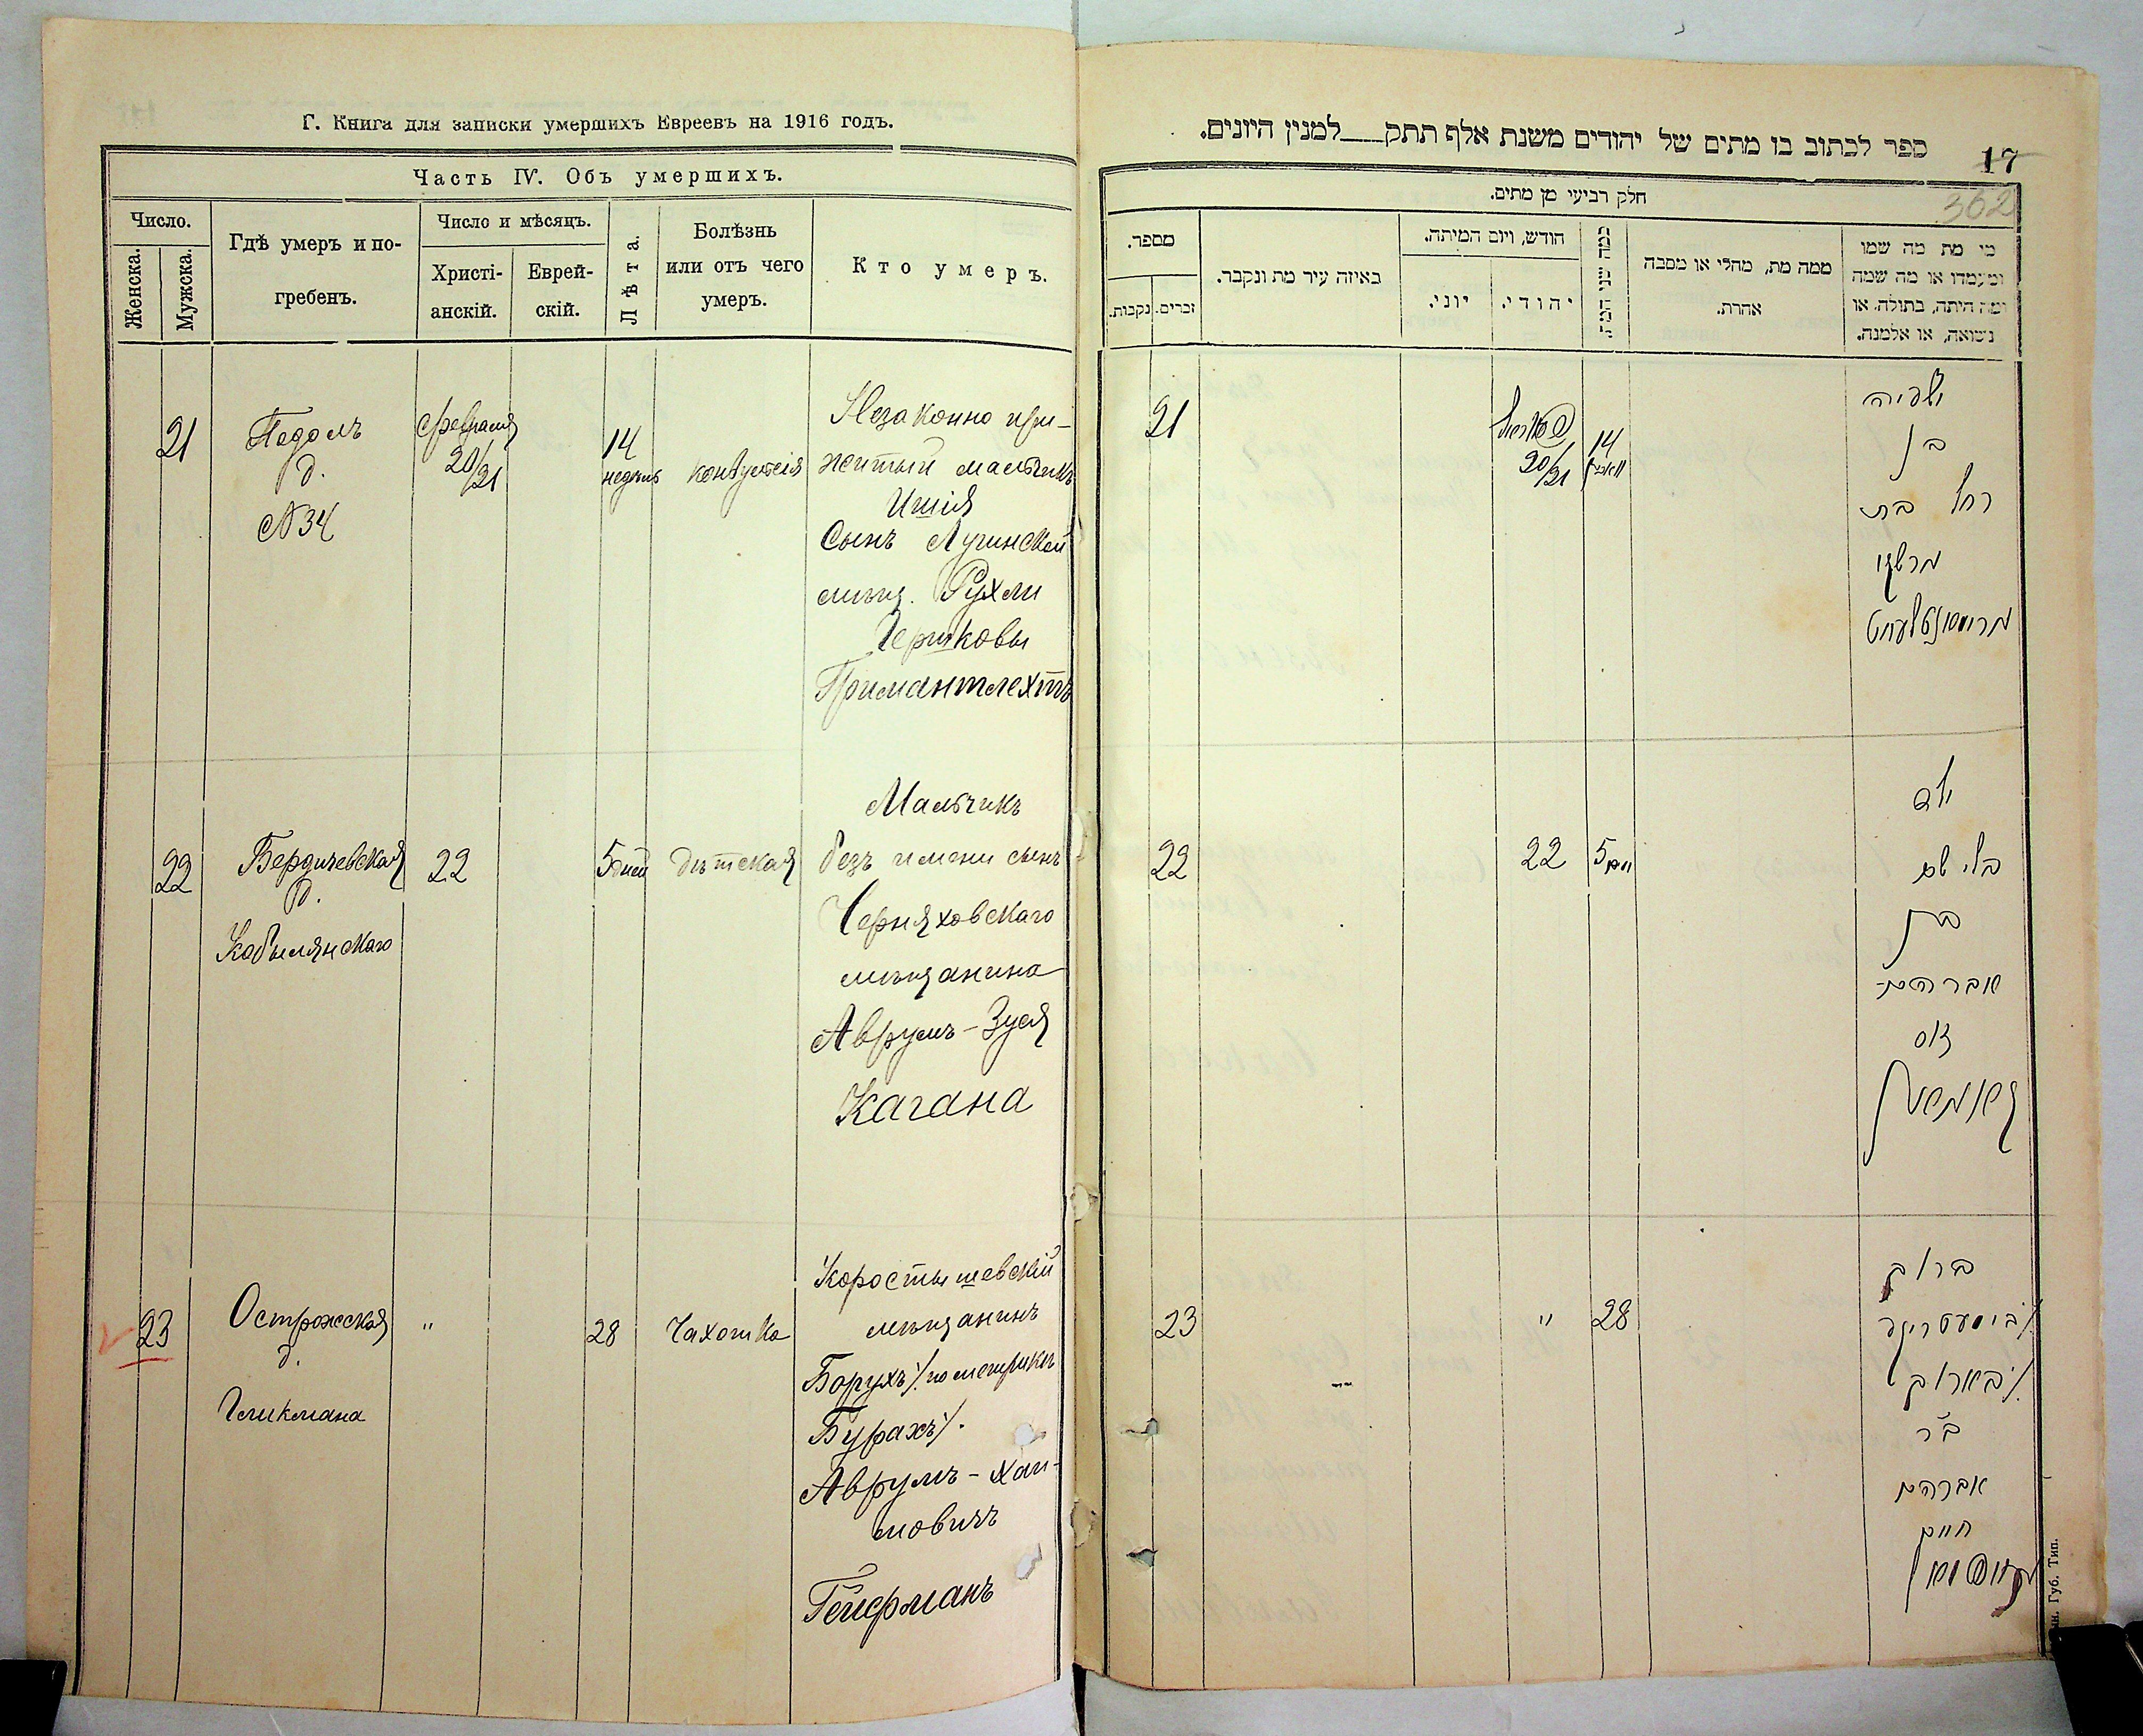 Г. Книга для записки умершихъ Евреевъ на 1916 годъ.
Часть IV. Объ умершихъ.
Число.
Женска.
Мужска.
Гдѣ умеръ и по-
гребенъ.
Число и мѣсяцъ.
Христі-
анскій.
Еврей-
скій.
Лѣта.
Болѣзнь
или отъ чего
умеръ.
Кто умеръ.
21
д.
№ 34
Февраля
20/21
14
недѣль
Незаконно при-
житый мальчикъ
Ишія
Сынъ Лугинской
мѣщ. Рухли
Гершковы
Примантлехтъ
22
Бердичевская
д.
Кобылянскаго
22
5 дней
Дѣтская
Мальчикъ
безъ имени сынъ
Черняховскаго
мѣщанина
Аврумъ-Зуся
Кагана
23
Острожская
д.
Гликмана
"
28
Чахотка
Коростышевскій
мѣщанинъ
Борухъ /. по метрикѣ
Бурахъ/.
Аврумъ-Хаи-
мовичъ
Гейфманъ
ספר לכתוב בו מתים של יהודים משנת אלף תתק___למנין היונים.
17
362
חלק רביעי מן מתים.
מספר.
זכרים.
נקבות.
באיזה עיר מת ונקבר.
חודש, ויום המיתה.
יוני.
יהודי.
כמה שני המת
ממה מת, מחלי או מסבה
אחרת.
מי מת מה שמו
ומעמדו או מה שמה
ומה היתה, בתולה או
נשואה, או אלמנה.
21
20/21
14
ישעיה
בן
רחל בת
22
22
5 ימים
ילד
בלי שם
בן
אברהם-
זוס
23
"
28
ברוך
ב"ר
אברהם
חיים
Губ. Тип.